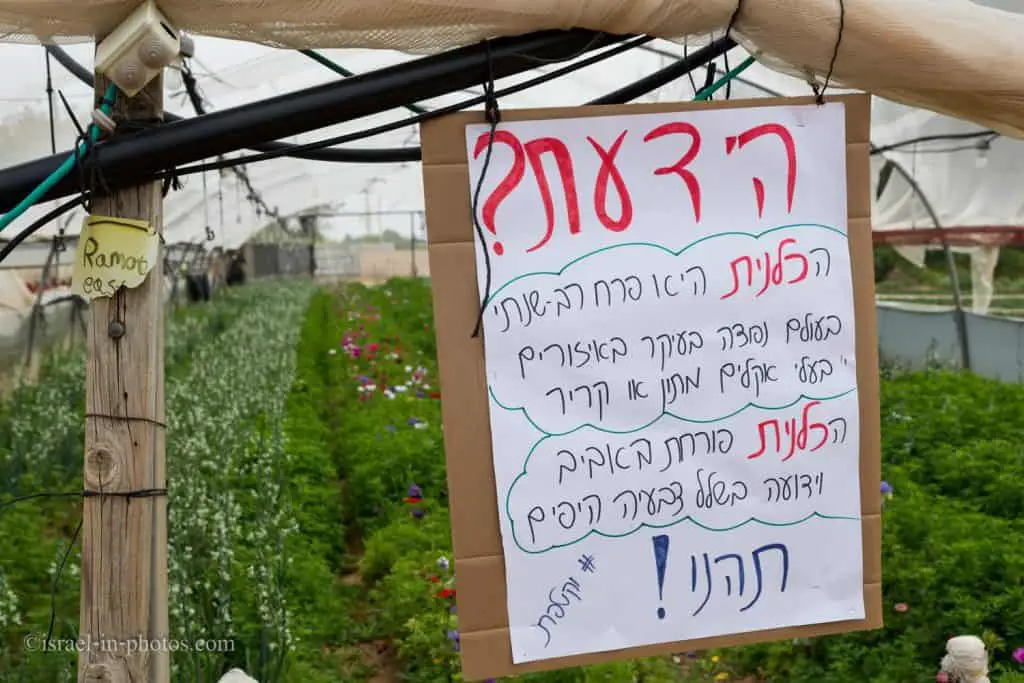 הידעת?
הכלנית היא פרח רב-שנתי
בעולם נפוצה בעיקר באיזורים
בעלי אקלים מתון או קריר
הכלנית פורחת באביב
וידועה בשלל צבעיה היפים
תהנו!
Ramot
east
©israel-in-photos.com